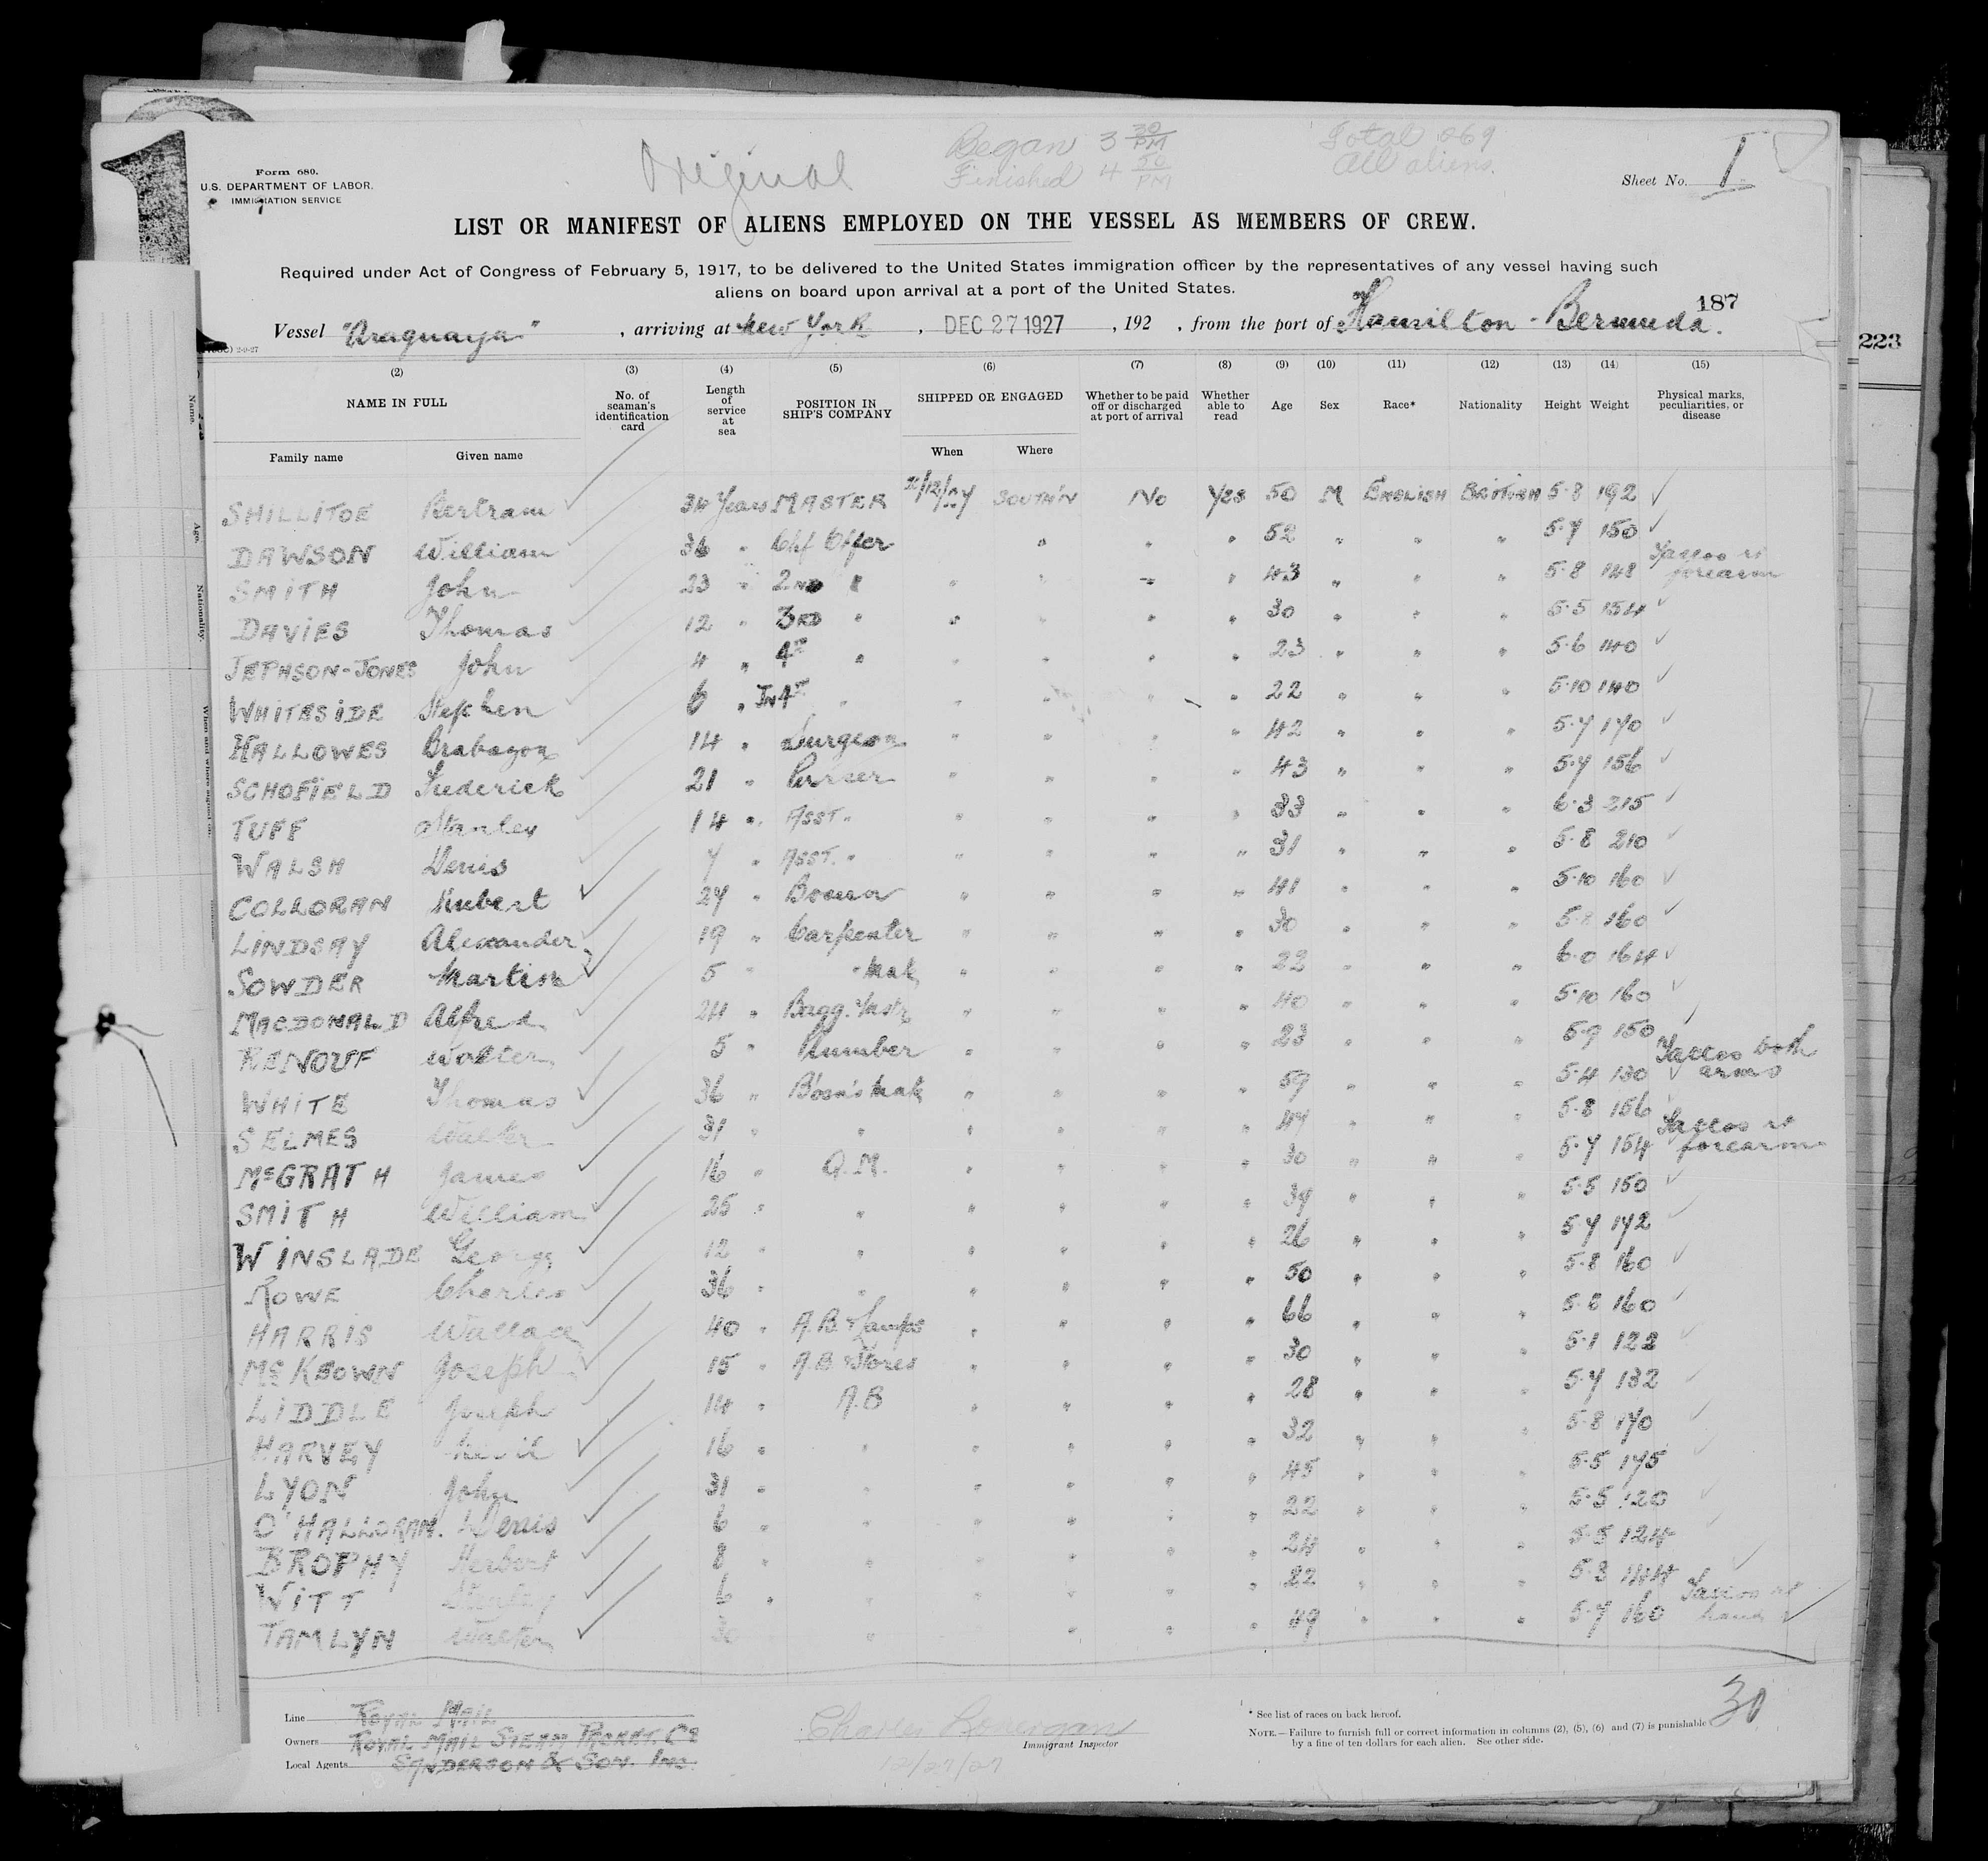 Original
Began 3 30/PM
Finished 4 50/PM
Total 269
All aliens.
Form 680.
U.S. DEPARTMENT OF LABOR.
IMMIGRATION SERVICE
Sheet No. 1
LIST OR MANIFEST OF ALIENS EMPLOYED ON THE VESSEL AS MEMBERS OF CREW.
Required under Act of Congress of February 5, 1917, to be delivered to the United States immigration officer by the representatives of any vessel having such
aliens on board upon arrival at a port of the United States.
187
223
Vessel "Araguaya", arriving at New York, DEC 27 1927, 192 , from the port of Hamilton - Bermuda.
(2) (3) (4) (5) (6) (7) (8) (9) (10) (11) (12) (13) (14) (15)
NAME IN FULL No. of seaman's identification card Length of service at sea POSITION IN SHIP'S COMPANY SHIPPED OR ENGAGED Whether to be paid off or discharged at port of arrival Whether able to read Age Sex Race* Nationality Height Weight Physical marks, peculiarities, or disease
Family name Given name When Where
SHILLITOE Bertram 34 Years MASTER SOUTH'N No Yes 50 M ENGLISH BRITISH 5·8 192
DAWSON William 36 " Chf Offcr " " " 52 " " " 5·7 150
SMITH John 23 " 2ND " " " " " 43 " " " 5·8 148 Tattoo rt forearm
DAVIES Thomas 12 " 3RD " " " " " 30 " " " 5·5 154
JEPHSON-JONES John 4 " 4TH " " " " " 23 " " " 5·6 140
WHITESIDE Stephen 6 " JN 4TH " " " " " 22 " " " 5·10 140
HALLOWES Brabazon 14 " Surgeon " " " " 42 " " " 5·7 170
SCHOFIELD Frederick 21 " Purser " " " " 43 " " " 5·7 156
TUFF Stanley 14 " ASST. " " " " " 33 " " " 6·3 215
WALSH Denis 7 " ASST. " " " " " 31 " " " 5·8 210
COLLORAN Hubert 27 " Bosun " " " " 41 " " " 5·10 160
LINDSAY Alexander 19 " Carpenter " " " " 30 " " " 5·8 160
SOWDER Martin 5 " " Mate " " " " 22 " " " 6·0 164
MACDONALD Alfred 24 " Bagg. Mastr " " " " 40 " " " 5·10 160
RENOUF Walter 5 " Plumber " " " " 23 " " " 5·9 150
WHITE Thomas 36 " Bosn's Mate " " " " 59 " " " 5·4 130 Tattoo both arms
SELMES Walter 31 " " " " " " 47 " " " 5·8 156
McGRATH James 16 " Q.M. " " " " 30 " " " 5·7 154 Tattoo rt forearm
SMITH William 25 " " " " " " 37 " " " 5·5 150
WINSLADE George 12 " " " " " " 26 " " " 5·7 172
ROWE Charles 36 " " " " " " 50 " " " 5·8 160
HARRIS Wallace 40 " A.B. Lamps " " " " 66 " " " 5·8 160
McKEOWN Joseph 15 " A.B. Stores " " " " 30 " " " 5·1 122
LIDDLE Joseph 14 " A.B " " " " 28 " " " 5·7 132
HARVEY 16 " " " " " " 32 " " " 5·8 170
LYON John 31 " " " " " " 45 " " " 5·5 175
O'HALLORAN. Denis 6 " " " " " " 22 " " " 5·5 120
BROPHY Herbert 8 " " " " " " 24 " " " 5·5 124
WITT Stanley 6 " " " " " " 22 " " " 5·3 144
TAMLYN Walter 30 " " " " 49 " " " 5·7 160 Tattoo rt hand
30
Line ROYAL MAIL
Owners ROYAL MAIL STEAM PACKET. Co
Local Agents SANDERSON & SON. INC.
Charles Lonergan
Immigrant Inspector
12/27/27
* See list of races on back hereof.
NOTE.—Failure to furnish full or correct information in columns (2), (5), (6) and (7) is punishable
by a fine of ten dollars for each alien. See other side.